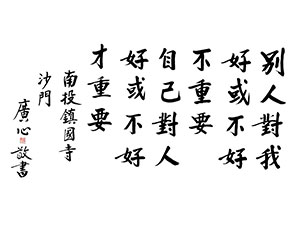 別人對我
好或不好
不重要
自己對人
好或不好
才重要
南投鎮國寺
沙門
廣心敬書